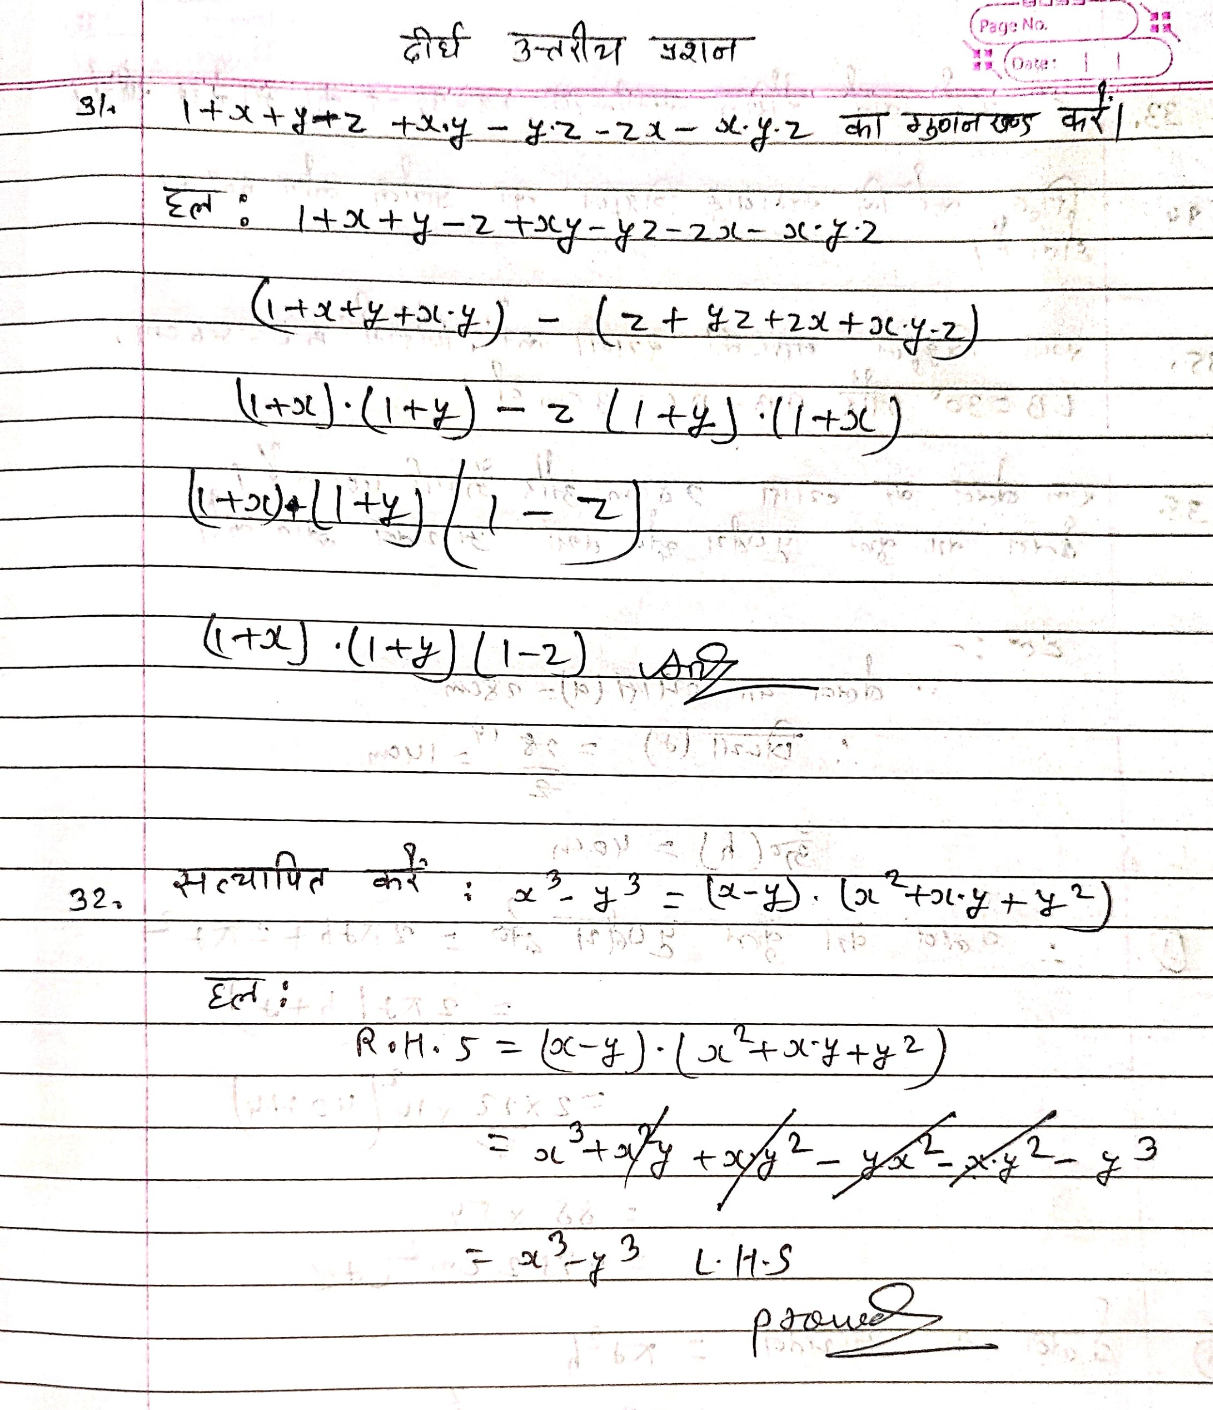 Page No.
Date:
दीर्घ उत्तरीय प्रशन
31. 1+x+y+z +x.y - y.z - zx - x.y.z का गुणनखण्ड करें।
हल : 1+x+y-z+xy-yz-zx-x.y.z
(1+x+y+x.y.) - (z+yz+zx+x.y.z)
(1+x).(1+y) - z (1+y).(1+x)
(1+x).(1+y) (1-z)
(1+x).(1+y)(1-z) Ans
32. सत्यापित करें : x³-y³ = (x-y).(x²+x.y+y²)
हल :
R.H.S = (x-y).(x²+x.y+y²)
= x³+x²y+xy²-yx²-x.y²-y³
= x³-y³ L.H.S
proved